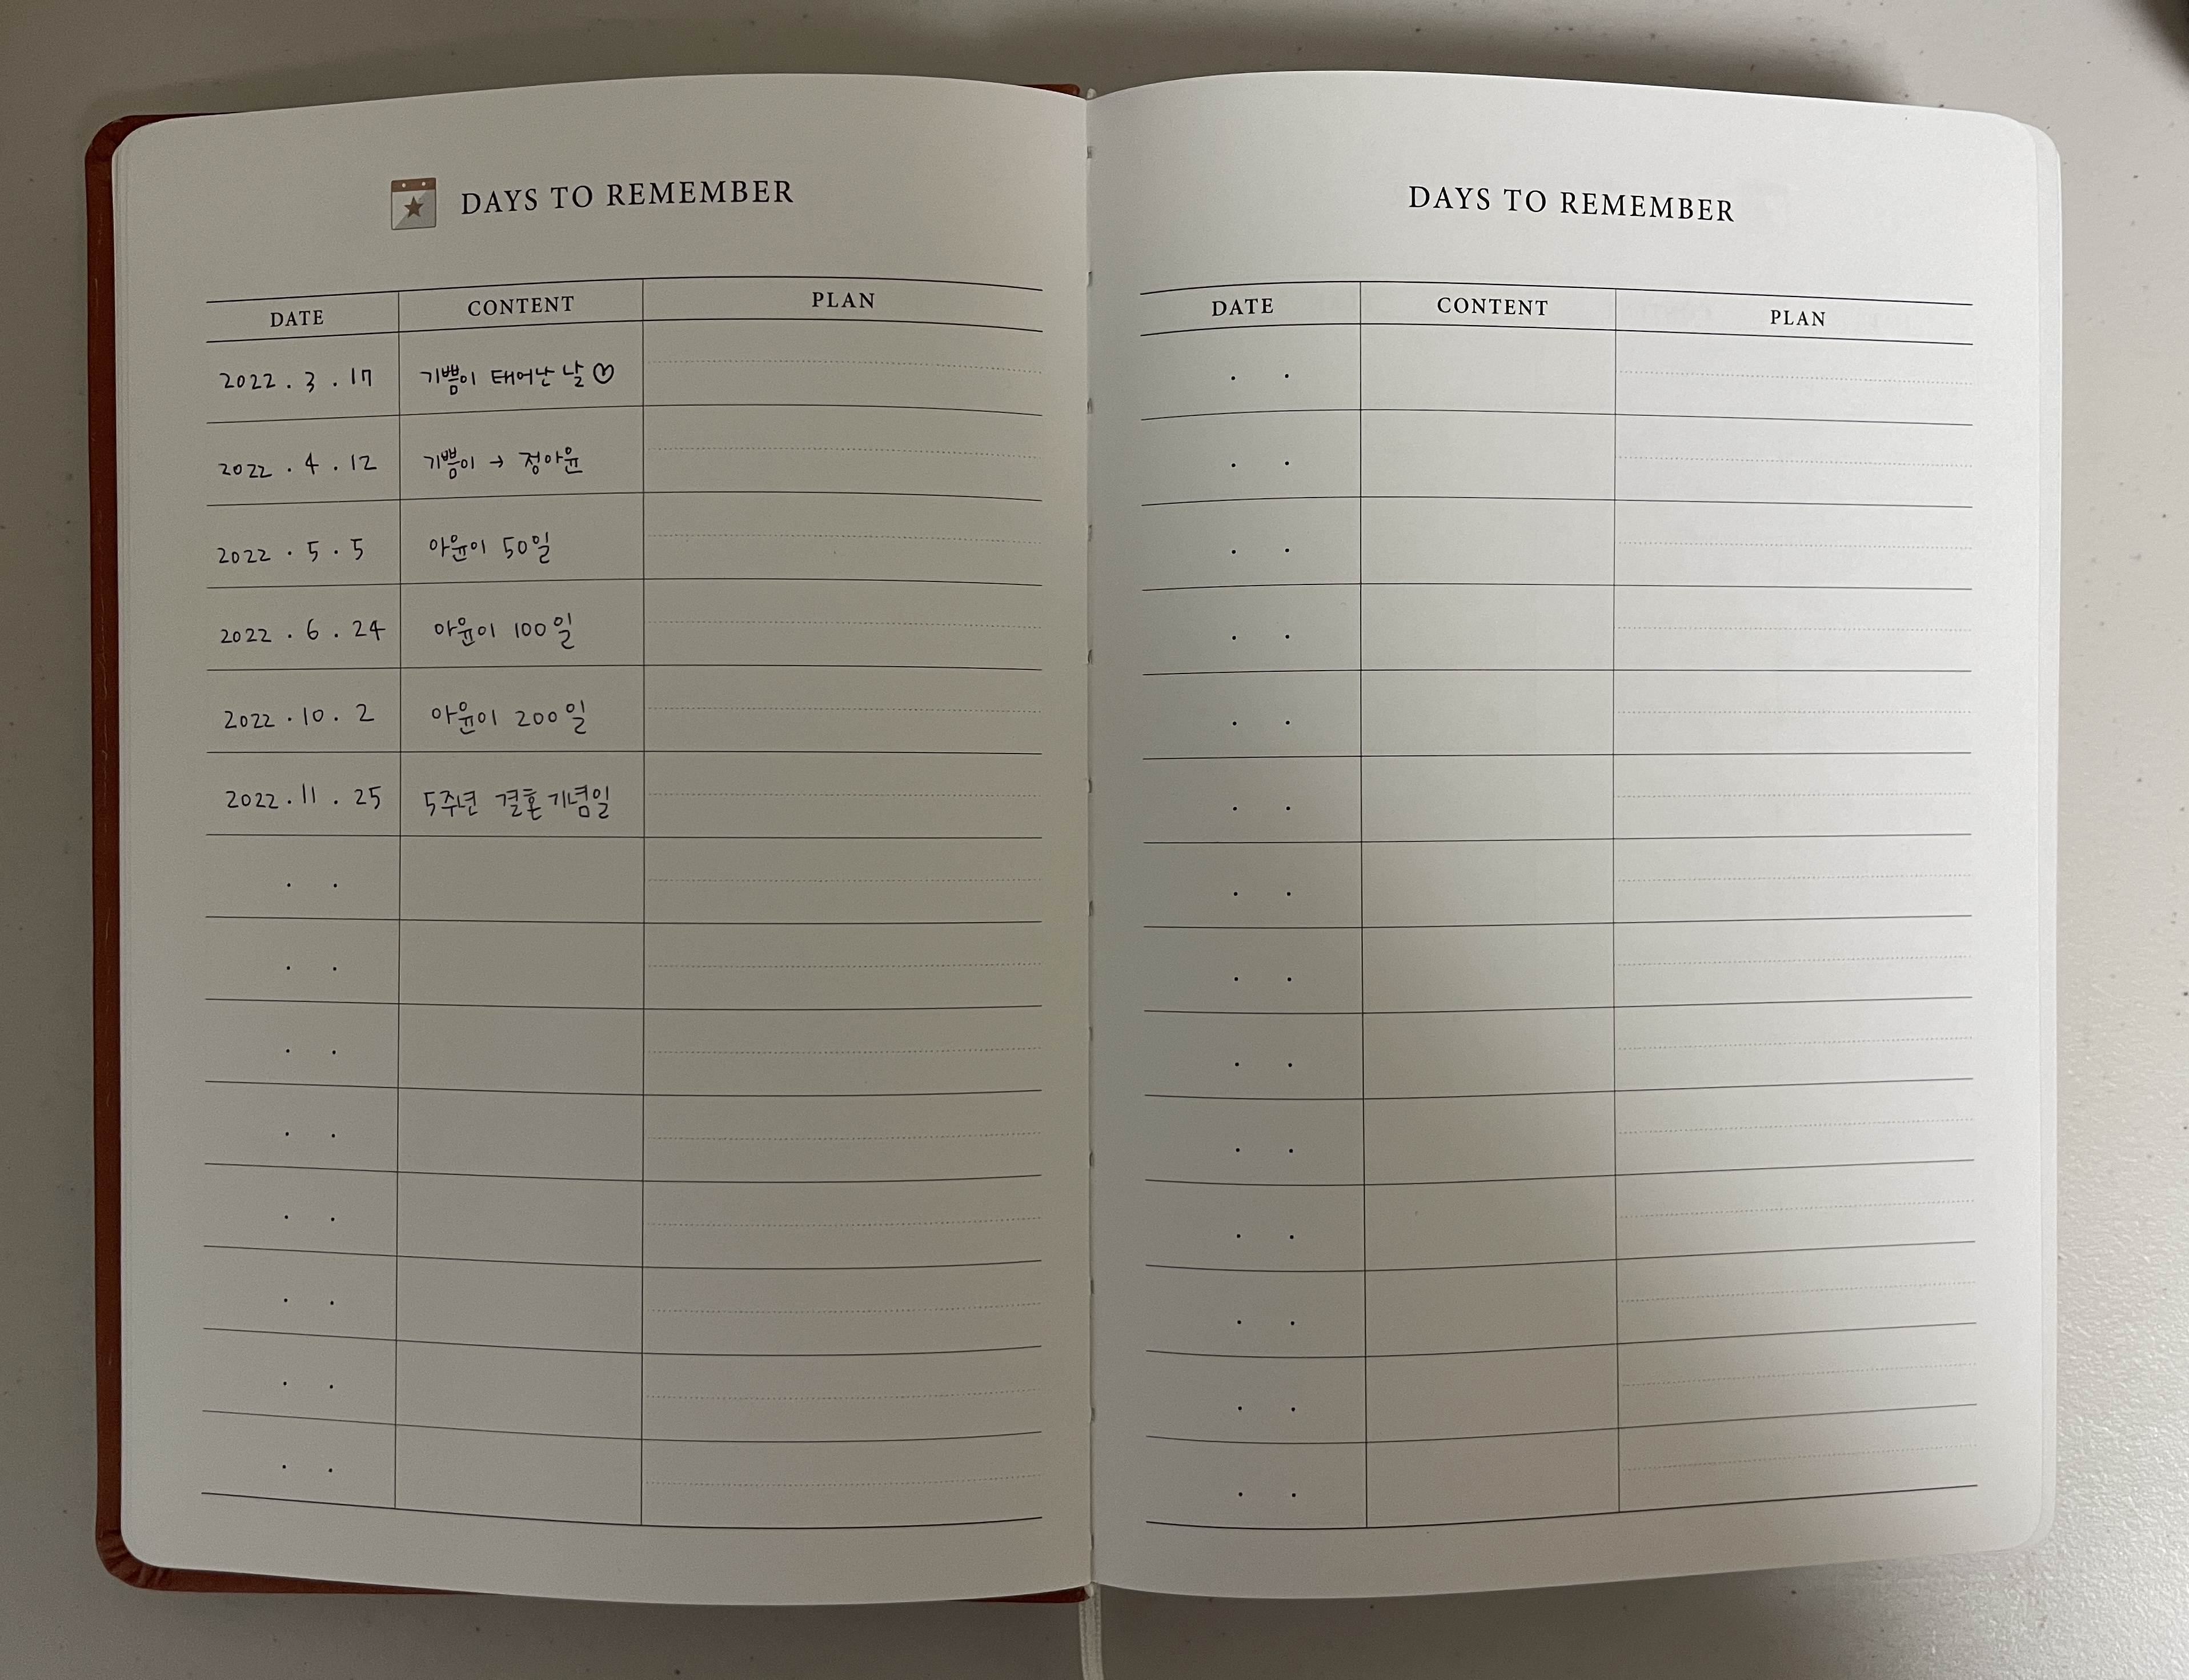 DAYS TO REMEMBER
DATE CONTENT PLAN
2022 . 3 . 17 기쁨이 태어난 날 ♡
2022 . 4 . 12 기쁨이 → 정아윤
2022 . 5 . 5 아윤이 50일
2022 . 6 . 24 아윤이 100일
2022 . 10 . 2 아윤이 200일
2022 . 11 . 25 5주년 결혼기념일
DAYS TO REMEMBER
DATE CONTENT PLAN